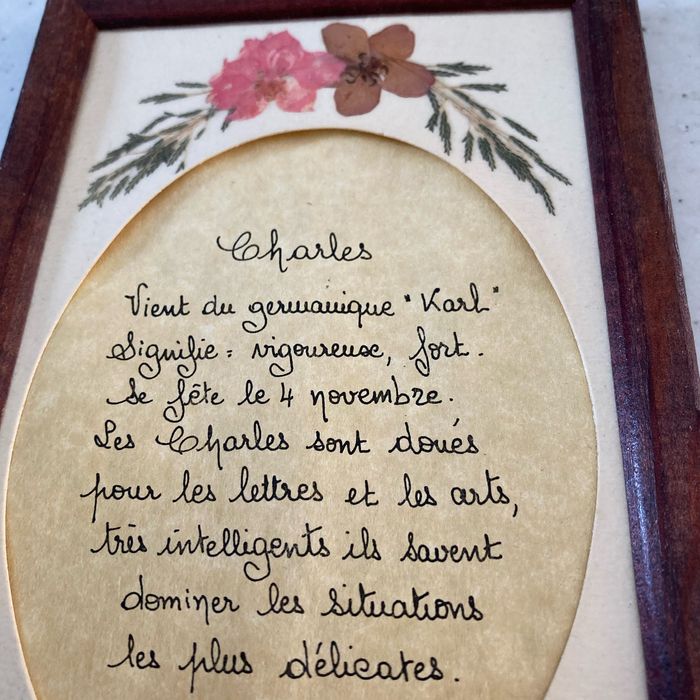 Charles
Vient du germanique "Karl"
Signifie : vigoureux, fort.
Se fête le 4 novembre.
Les Charles sont doués
pour les lettres et les arts,
très intelligents ils savent
dominer les situations
les plus délicates.